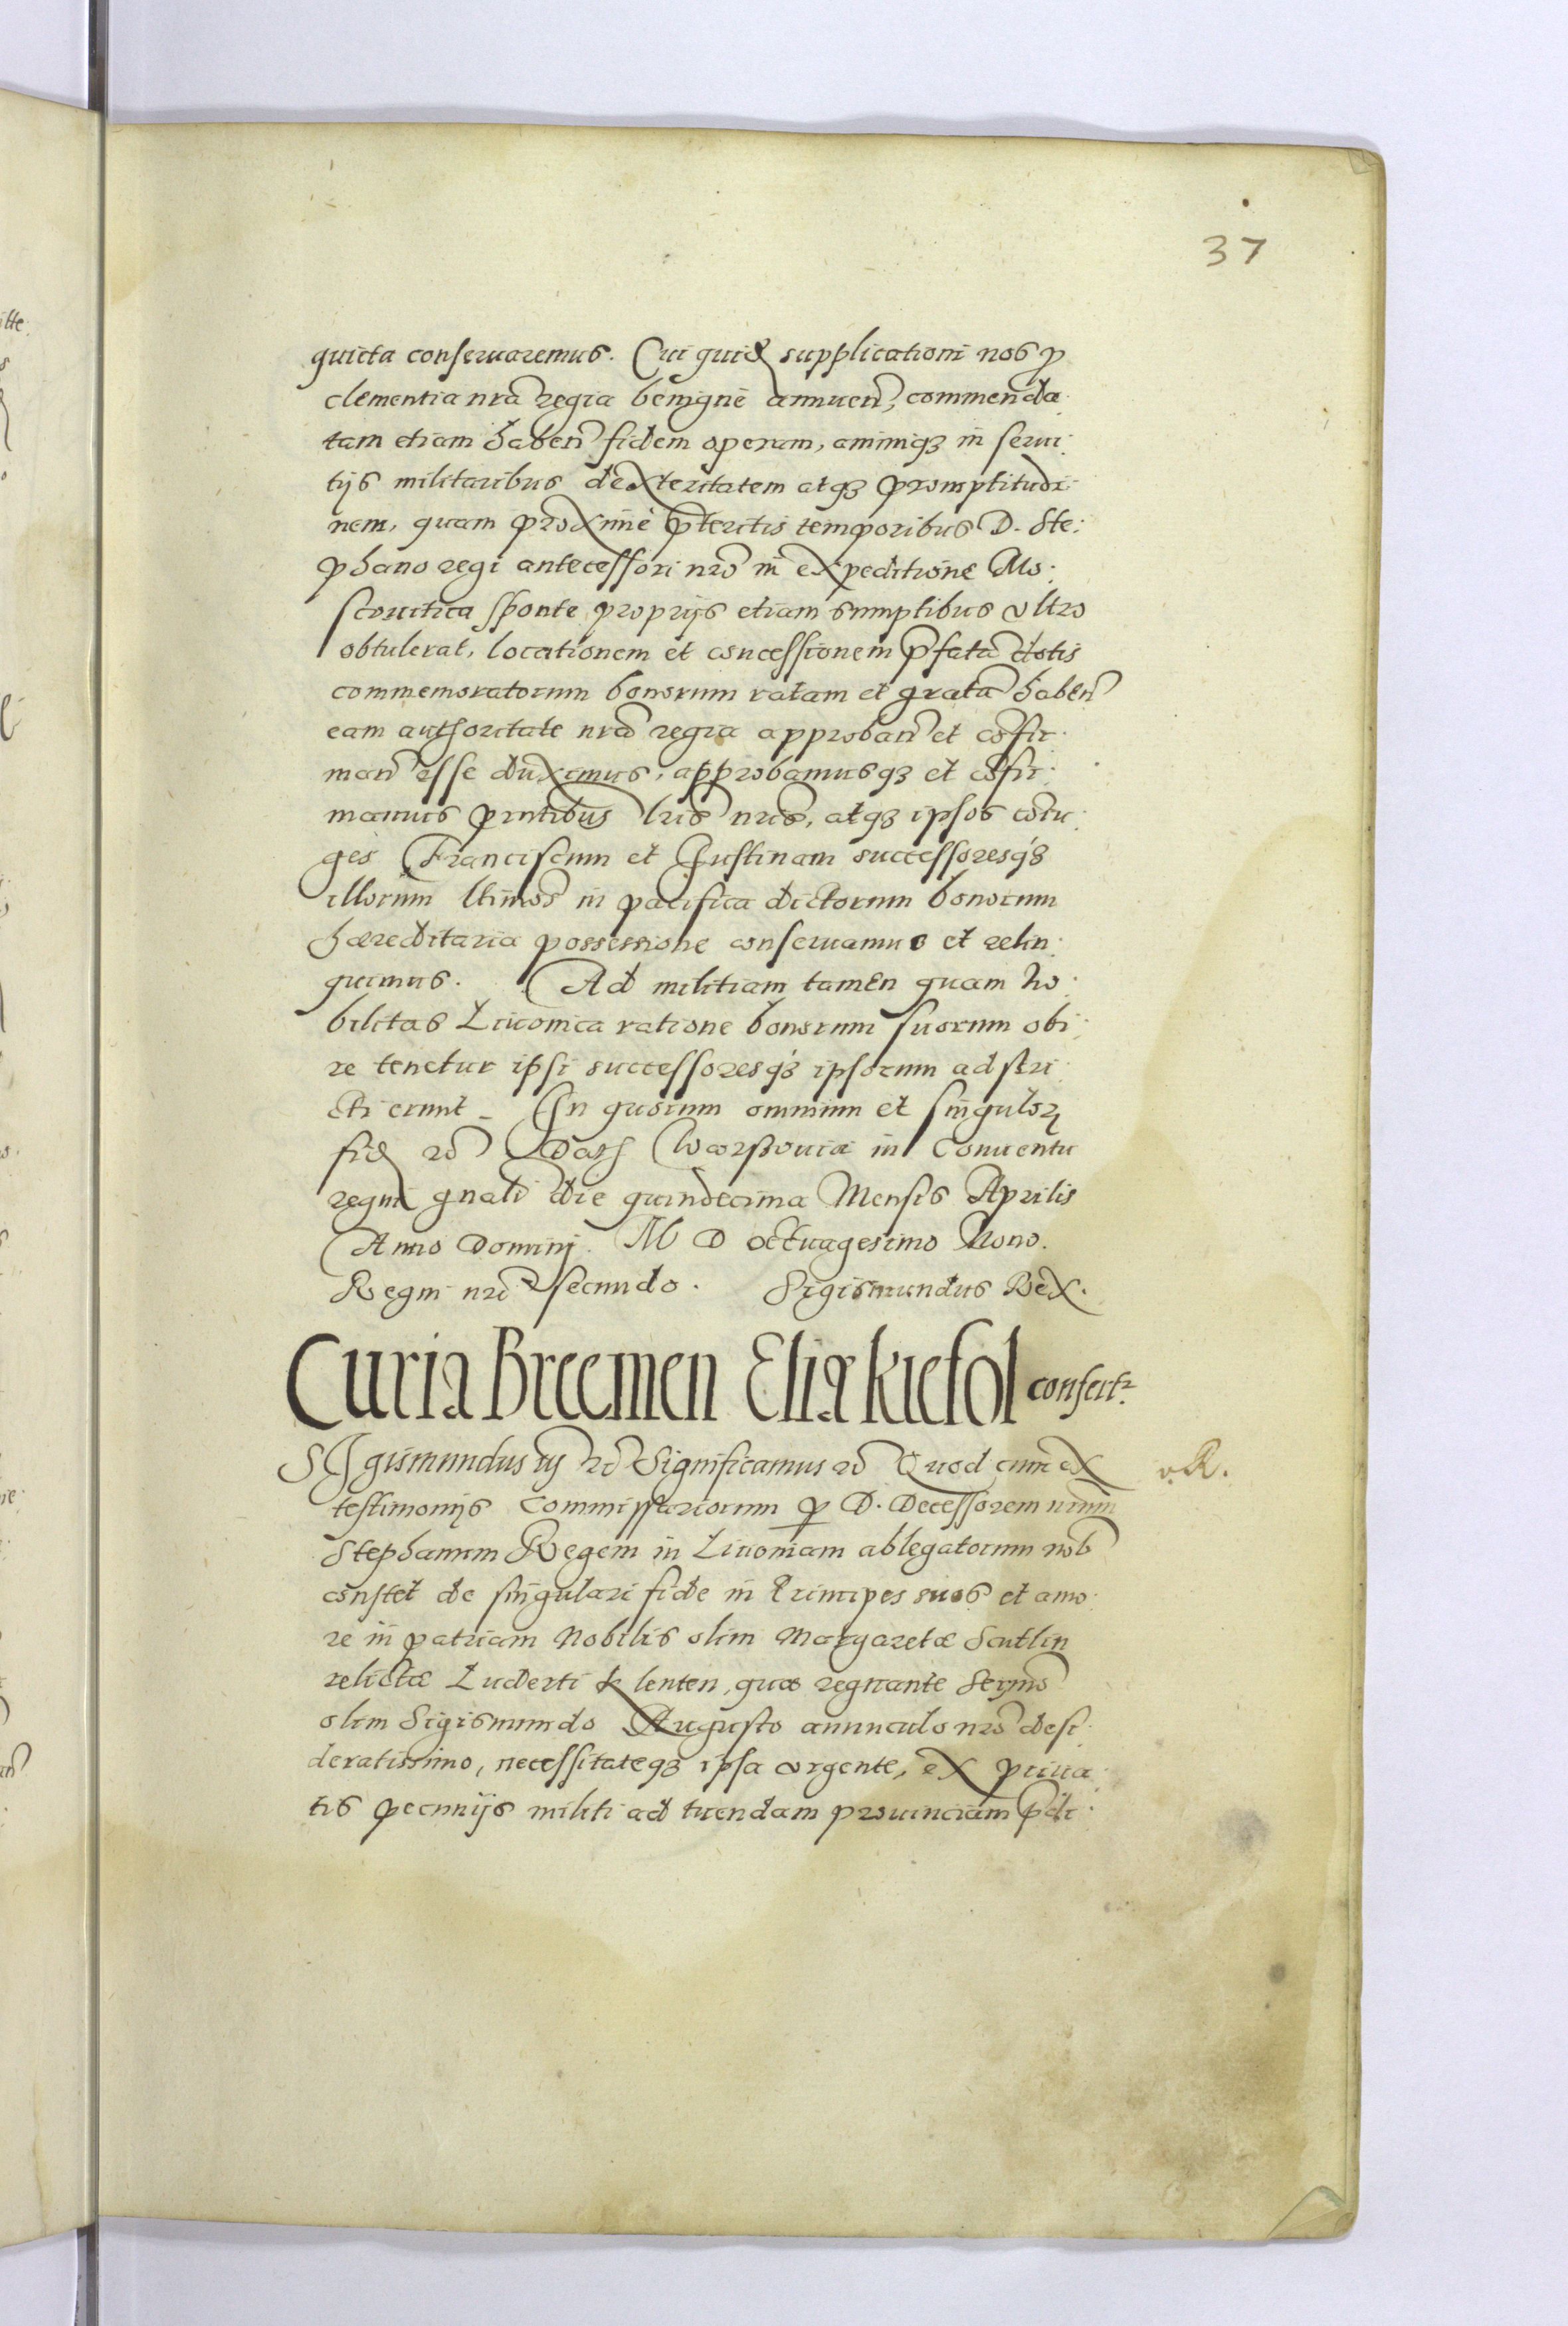 37
quieta conseruaremus. Cui quid supplicationi nos p
clementia nra regia benigne annuen, commenda
tam etiam haben fidem operam, animiq3 in serui:
tijs militaribus dexteritatem atq3 promptitudi:
nem, quam proxime pteritis temporibus D. Ste:
phano regi antecessori nro in expeditione Mo:
scouitica sponte proprijs etiam sumptibus vltro
obtulerat, locationem et concessionem pfatam dotis
commemoratorum bonorum ratam et grata haben
eam authoritate nra regia approban et cofir:
man esse duximus, approbamusq3 et cofir:
mamus pntibus lris nris, atq3 ipsos coiu:
ges Franciscum et Justinam successoresq3
illorum ltimos in pacifica dictorum bonorum
hæreditaria possessione conseruamus et relin:
quimus. Ad militiam tamen quam no:
bilitas Liuonica ratione bonorum suorum obi:
re tenetur ipsi successoresq3 ipsorum adstri:
cti erunt _ In quorum omnium et singulor
fid rc Dat Warssouiæ in Conuentu
regni gnali die quindecima Mensis Aprilis
Anno Domini M D octuagesimo Nono.
Regni nri secundo. Sigismundus Rex.
Curia Breemen Eliæ kiefol confert.
SIgismundus iij rc Significamus rc Quod cum ex
v. R.
testimonijs Commissariorum p D. Decessorem nrum
Stephanum Regem in Liuoniam ablegatorum nob
constet de singulari fide in Principes suos et amo:
re in patriam Nobilis olim Margaretæ Scutlin
relictæ Luderti k lenten, quæ regnante Sermo
olim Sigismundo Augusto auunculo nro desi:
deratissimo, necessitateq3 ipsa vrgente, ex priua:
tis pecunijs militi ad tuendam prouinciam pdi: